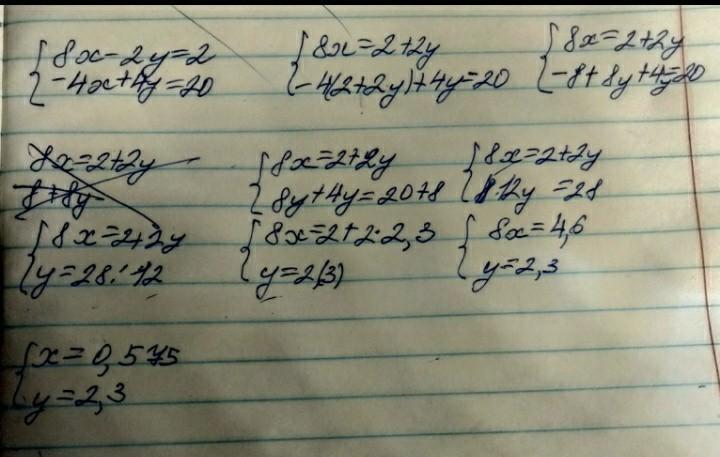 8x-2y=2
-4x+4y=20
8x=2+2y
-4(2+2y)+4y=20
8x=2+2y
-8+8y+4y=20
8x=2+2y
8+8y
8x=2+2y
8y+4y=20+8
8x=2+2y
12y=28
8x=2+2y
y=28:12
8x=2+2·2,3
y=2(3)
8x=4,6
y=2,3
x=0,575
y=2,3